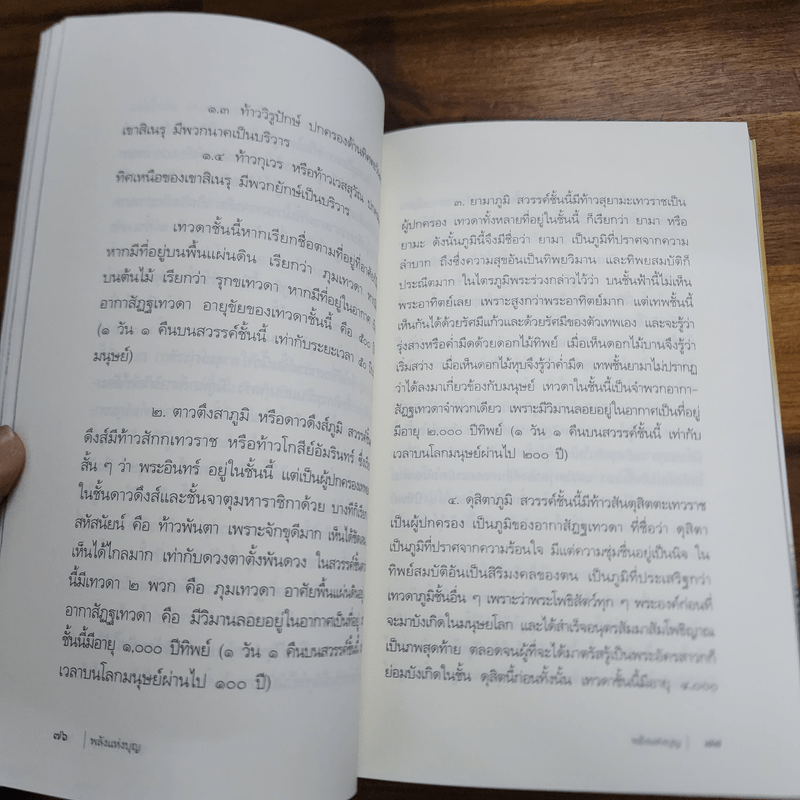 ๑.๓ ท้าววิรูปักษ์ ปกครองด้านทิศ
เขาสิเนรุ มีพวกนาคเป็นบริวาร
๑.๔ ท้าวกุเวร หรือท้าวเวสสุวัณ
ทิศเหนือของเขาสิเนรุ มีพวกยักษ์เป็นบริวาร
เทวดาชั้นนี้หากเรียกชื่อตามที่อยู่ที่อาศัย
หากมีที่อยู่บนพื้นแผ่นดิน เรียกว่า ภุมเทวดา
บนต้นไม้ เรียกว่า รุกขเทวดา หากมีที่อยู่ในอากาศ
อากาสัฏฐเทวดา อายุขัยของเทวดาชั้นนี้ คือ ๕๐๐
(๑ วัน ๑ คืนบนสวรรค์ชั้นนี้ เท่ากับระยะเวลา ๕๐
มนุษย์)
๒. ตาวตึงสาภูมิ หรือดาวดึงส์ภูมิ
ดึงส์มีท้าวสักกเทวราช หรือท้าวโกสีย์อัมรินทร์
สั้น ๆ ว่า พระอินทร์ อยู่ในชั้นนี้ แต่เป็นผู้ปกครอง
ในชั้นดาวดึงส์และชั้นจาตุมหาราชิกาด้วย บางทีก็เรียก
สหัสนัยน์ คือ ท้าวพันตา เพราะจักขุดีมาก เห็นได้ชัด
เห็นได้ไกลมาก เท่ากับดวงตาตั้งพันดวง ในสวรรค์ชั้น
นี้มีเทวดา ๒ พวก คือ ภุมเทวดา อาศัยพื้นแผ่นดิน
อากาสัฏฐเทวดา คือ มีวิมานลอยอยู่ในอากาศเป็นที่อยู่
ชั้นนี้มีอายุ ๑,๐๐๐ ปีทิพย์ (๑ วัน ๑ คืนบนสวรรค์ชั้นนี้
เวลาบนโลกมนุษย์ผ่านไป ๑๐๐ ปี)
๗๖ | พลังแห่งบุญ
๓. ยามาภูมิ สวรรค์ชั้นนี้มีท้าวสุยามะเทวราชเป็น
ผู้ปกครอง เทวดาทั้งหลายที่อยู่ในชั้นนี้ ก็เรียกว่า ยามา หรือ
ยามะ ดังนั้นภูมินี้จึงมีชื่อว่า ยามา เป็นภูมิที่ปราศจากความ
ลำบาก ถึงซึ่งความสุขอันเป็นทิพยวิมาน และทิพยสมบัติก็
ประณีตมาก ในไตรภูมิพระร่วงกล่าวไว้ว่า บนชั้นฟ้านี้ไม่เห็น
พระอาทิตย์เลย เพราะสูงกว่าพระอาทิตย์มาก แต่เทพชั้นนี้
เห็นกันได้ด้วยรัศมีแก้วและด้วยรัศมีของตัวเทพเอง และจะรู้ว่า
รุ่งสางหรือค่ำมืดด้วยดอกไม้ทิพย์ เมื่อเห็นดอกไม้บานจึงรู้ว่า
เริ่มสว่าง เมื่อเห็นดอกไม้หุบจึงรู้ว่าค่ำมืด เทพชั้นยามาไม่ปรากฏ
ว่าได้ลงมาเกี่ยวข้องกับมนุษย์ เทวดาในชั้นนี้เป็นจำพวกอากา-
สัฏฐเทวดาจำพวกเดียว เพราะมีวิมานลอยอยู่ในอากาศเป็นที่อยู่
มีอายุ ๒,๐๐๐ ปีทิพย์ (๑ วัน ๑ คืนบนสวรรค์ชั้นนี้ เท่ากับ
เวลาบนโลกมนุษย์ผ่านไป ๒๐๐ ปี)
๔. ดุสิตาภูมิ สวรรค์ชั้นนี้มีท้าวสันดุสิตตะเทวราช
เป็นผู้ปกครอง เป็นภูมิของอากาสัฏฐเทวดา ที่ชื่อว่า ดุสิตา
เป็นภูมิที่ปราศจากความร้อนใจ มีแต่ความชุ่มชื่นอยู่เป็นนิจ ใน
ทิพย์สมบัติอันเป็นสิริมงคลของตน เป็นภูมิที่ประเสริฐกว่า
เทวดาภูมิชั้นอื่น ๆ เพราะว่าพระโพธิสัตว์ทุก ๆ พระองค์ก่อนที่
จะมาบังเกิดในมนุษย์โลก และได้สำเร็จอนุตรสัมมาสัมโพธิญาณ
เป็นภพสุดท้าย ตลอดจนผู้ที่จะได้มาตรัสรู้เป็นพระอัครสาวกก็
ย่อมบังเกิดในชั้น ดุสิตนี้ก่อนทั้งนั้น เทวดาชั้นนี้มีอายุ ๔,๐๐๐
พลังแห่งบุญ | ๗๗